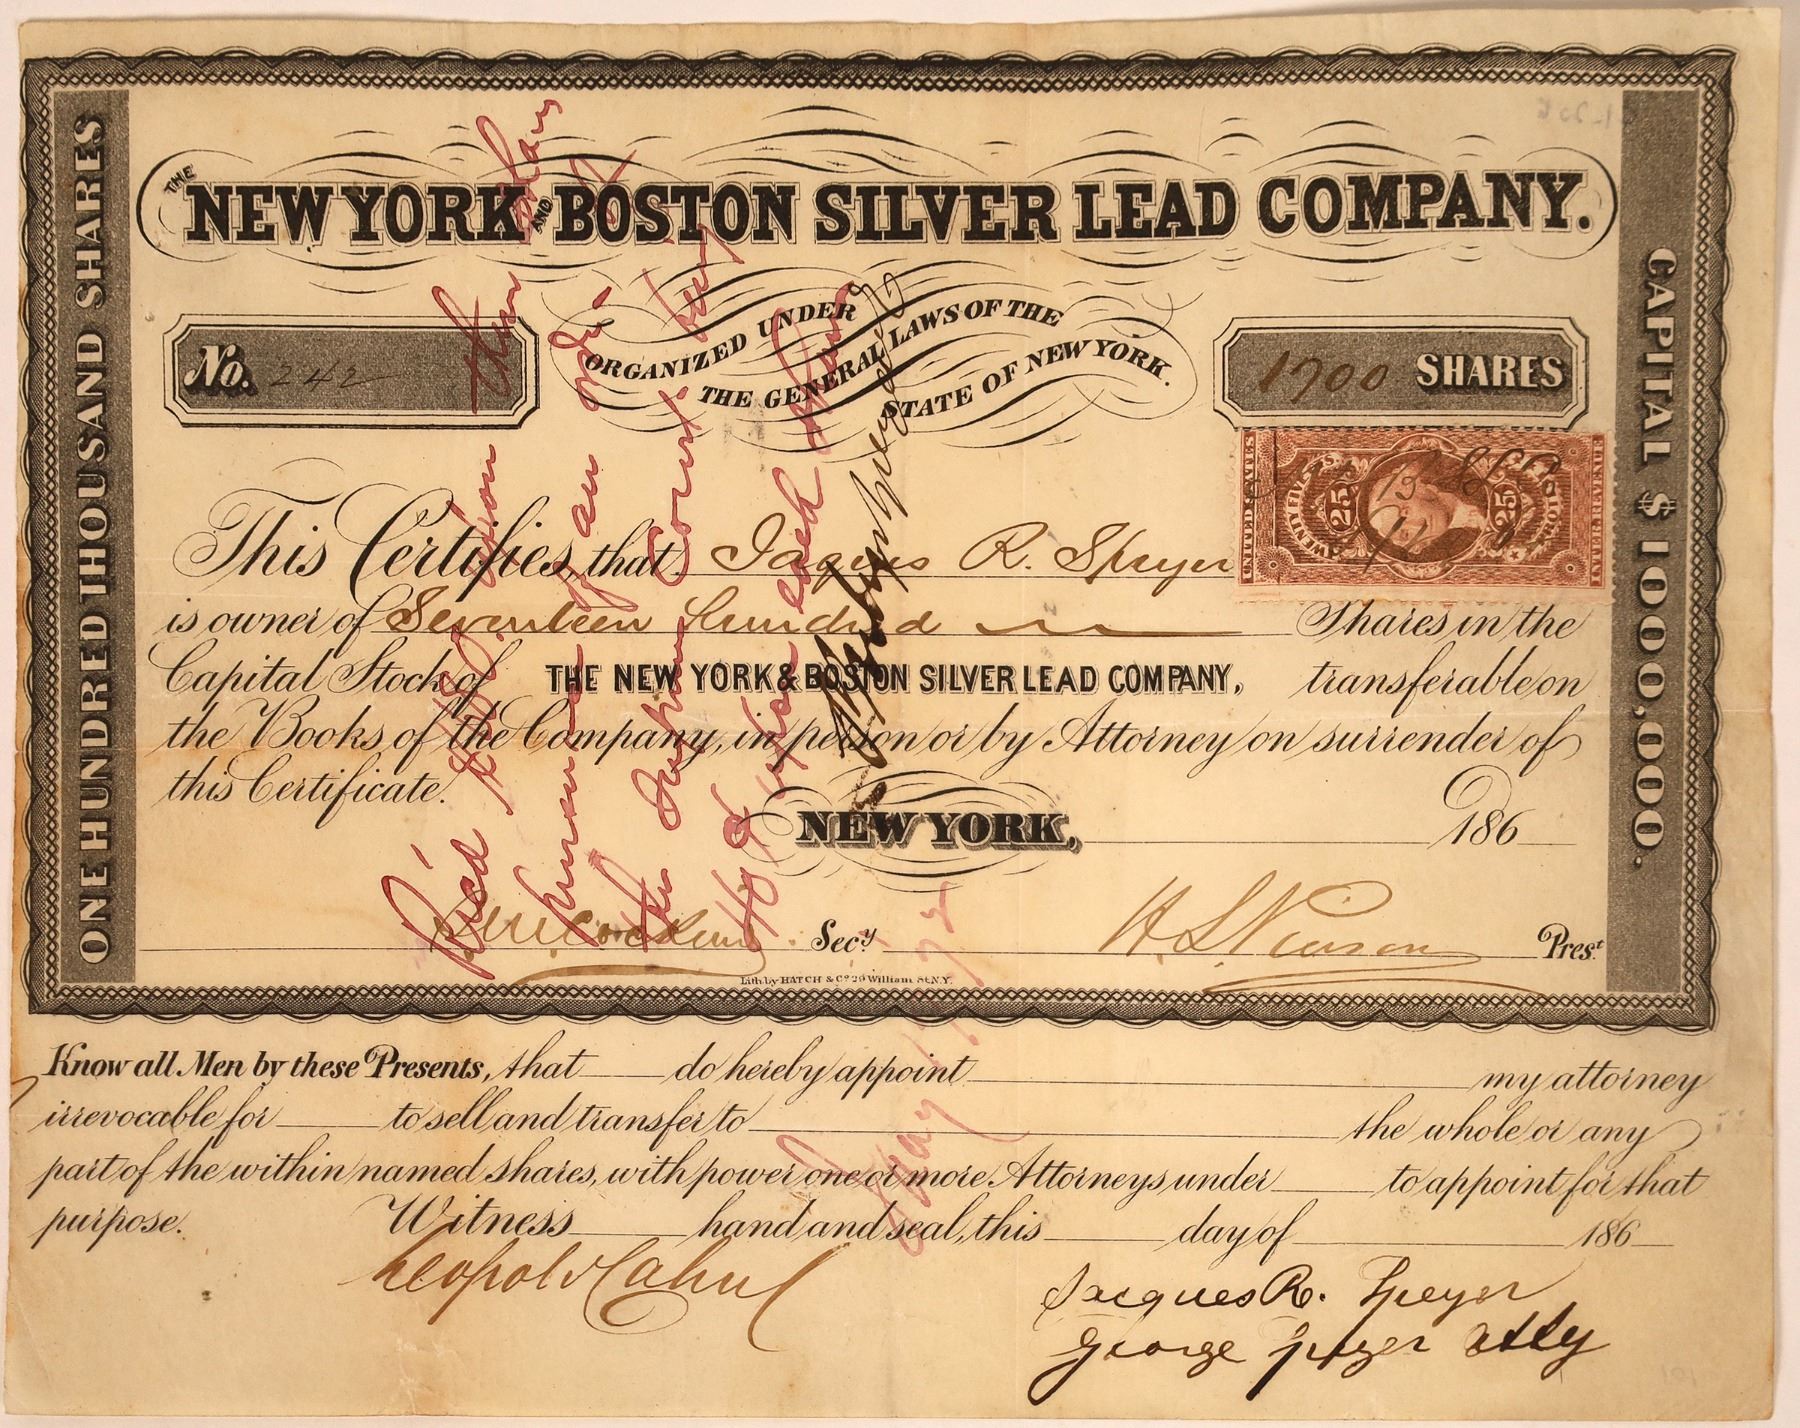 THE NEW YORK AND BOSTON SILVER LEAD COMPANY.
ONE HUNDRED THOUSAND SHARES
CAPITAL $1000,000.
ORGANIZED UNDER
THE GENERAL LAWS OF THE
STATE OF NEW YORK.
No. 242
1700 SHARES
UNITED STATES
TWENTY FIVE
25 25
INT. REVENUE
This Certifies, that Jaques R. Speyer
is owner of Seventeen Hundred Shares in the
Capital Stock of THE NEW YORK & BOSTON SILVER LEAD COMPANY, transferable on
the Books of the Company, in person or by Attorney on surrender of
this Certificate.
NEW YORK, 186
Secy.
H. S. Prest
Lith. by HATCH & Co 29 William St. N.Y.
Rec'd
an order
the Supreme Court
May 1872
Know all Men by these Presents, that do hereby appoint my attorney
irrevocable for to sell and transfer to the whole or any
part of the within named shares, with power one or more Attorneys under to appoint for that
purpose. Witness hand and seal, this day of 186
Leopold Cahn
Jacques R. Speyer
George Speyer Atty